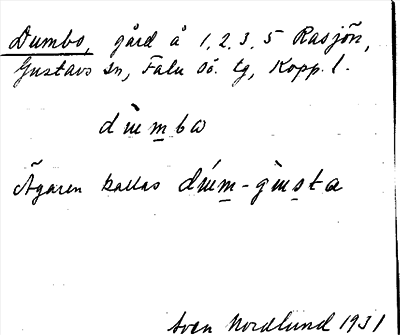 Dumbo, gård å 1, 2, 3, 5 Rasjön,
Gustavs sn, Falu Dö. tg, Kopp. l.
dùmba
Ägaren kallas dúm-gùsta
Sven Nordlund 1931